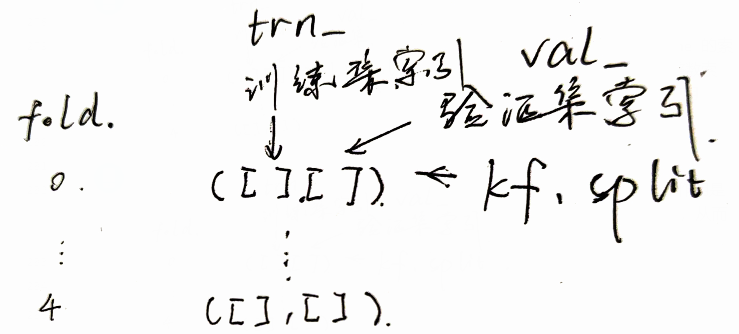 trn_
训练集索引
val_
验证集索引
fold.
0. ([ ],[ ]) ← kf. split
⋮ ⋮
4 ([ ],[ ]).